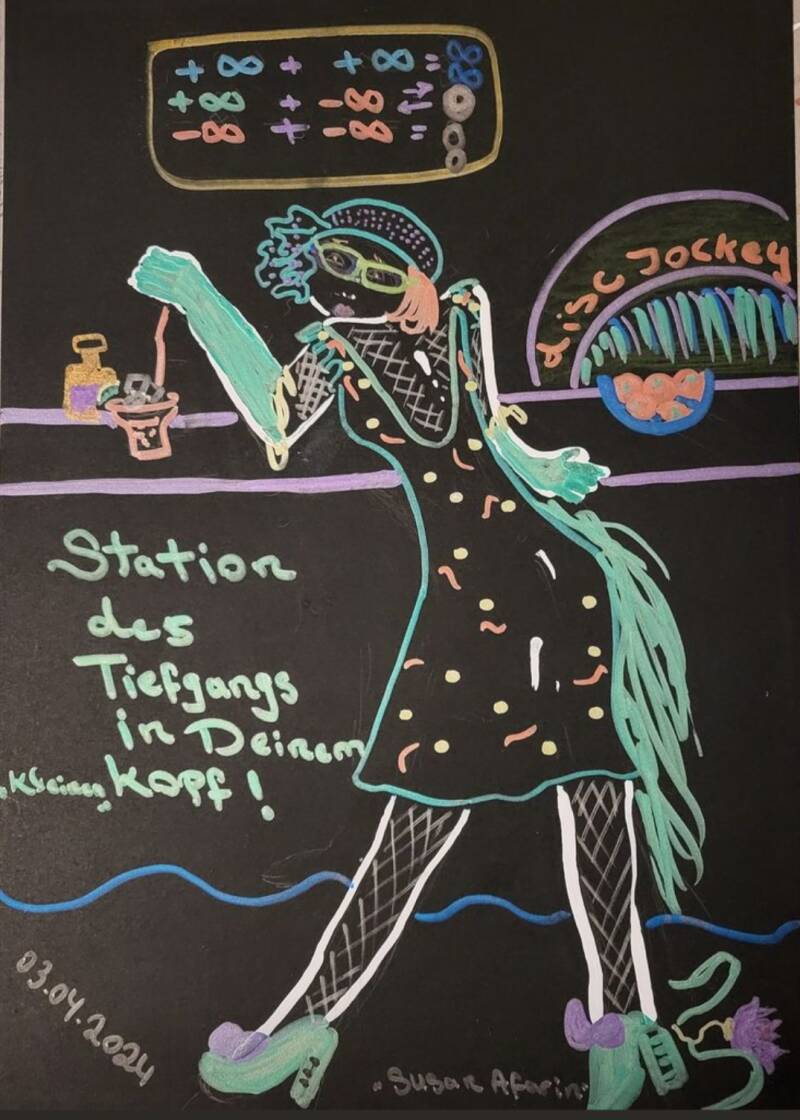 + ∞ + + ∞ = ∞
+ ∞ + - ∞ ⇆ 0
- ∞ + - ∞ = 8
disc Jockey
Station
des
Tiefgangs
in Deinem
"Kleinen" Kopf!
03.04.2024
"Susan Afarin"